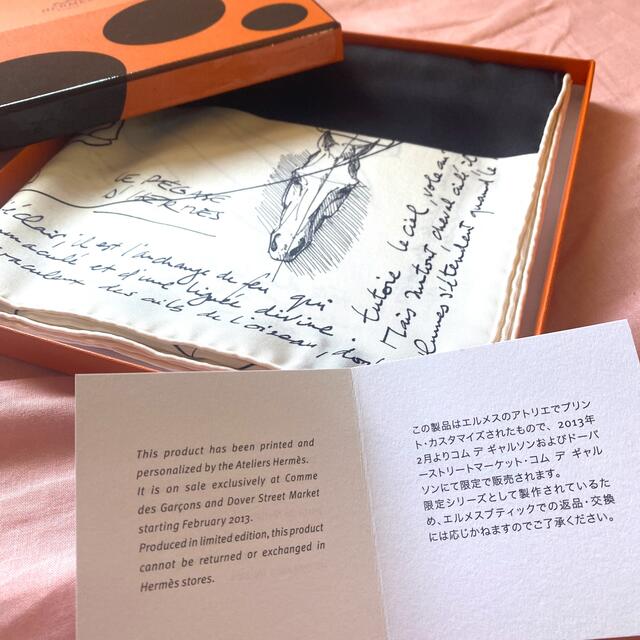 LE PÉGASE
D'HERMÈS
l'éclair, il est l'archange du feu, qui
immaculé et d'une lignée divine
des ails de l'oiseau,
tutoie le ciel, vole
Mais surtout, cheval ailé,
plumes s'étendent quand le
This product has been printed and
personalized by the Ateliers Hermès.
It is on sale exclusively at Comme
des Garçons and Dover Street Market
starting February 2013.
Produced in limited edition, this product
cannot be returned or exchanged in
Hermès stores.
この製品はエルメスのアトリエでプリン
ト・カスタマイズされたもので、2013年
2月よりコム デ ギャルソンおよびドーバ
ーストリートマーケット・コム デ ギャル
ソンにて限定で販売されます。
限定シリーズとして製作されているた
め、エルメスブティックでの返品・交換
には応じかねますのでご了承ください。